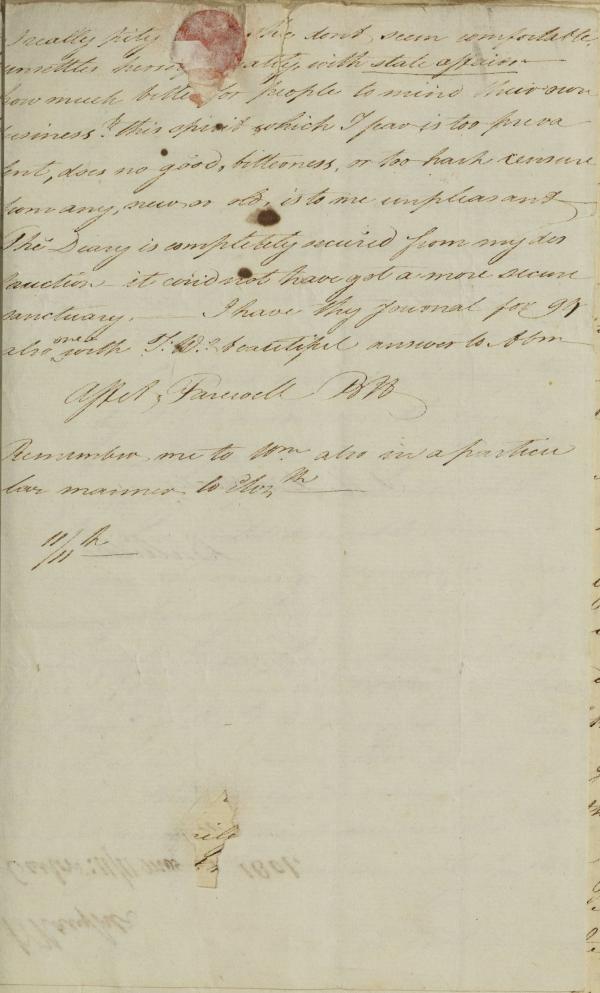 I really pity she dont seem comfortable,
unsettles with state affairs
how much better for people to mind their own
business, this spirit which I fear is too preva
lent, does no good, bitterness, or too harsh censure
from any, new or old, is to me unpleasant
The Diary is completely secured from my des
truction it could not have got a more secure
sanctuary. I have thy Journal for 99
also one with beautiful answer to Abm
Affect, Farewell
Remember me to Wm also in a particu
lar manner to Eliz th
11/11 th
1801.